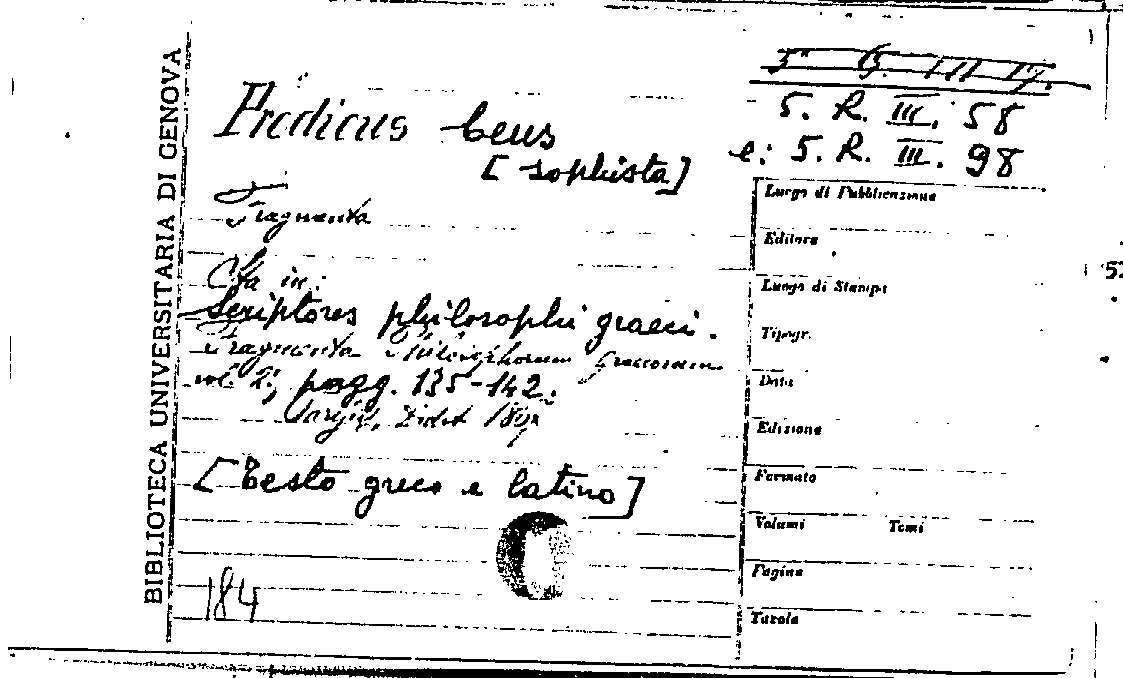 BIBLIOTECA UNIVERSITARIA DI GENOVA
5. R. III. 58
e: 5. R. III. 98
Prodicus Ceus
[sophista]
Fragmenta
Sta in:
Scriptores philosophi graeci.
Fragmenta Philosophorum Graecorum
vol. 2; pagg. 135-142.
Parisiis, Didot
[Testo greco e latino]
184
Luogo di Pubblicazione
Editore
Luogo di Stampa
Tipogr.
Data
Edizione
Formato
Volumi Tomi
Pagine
Tavole